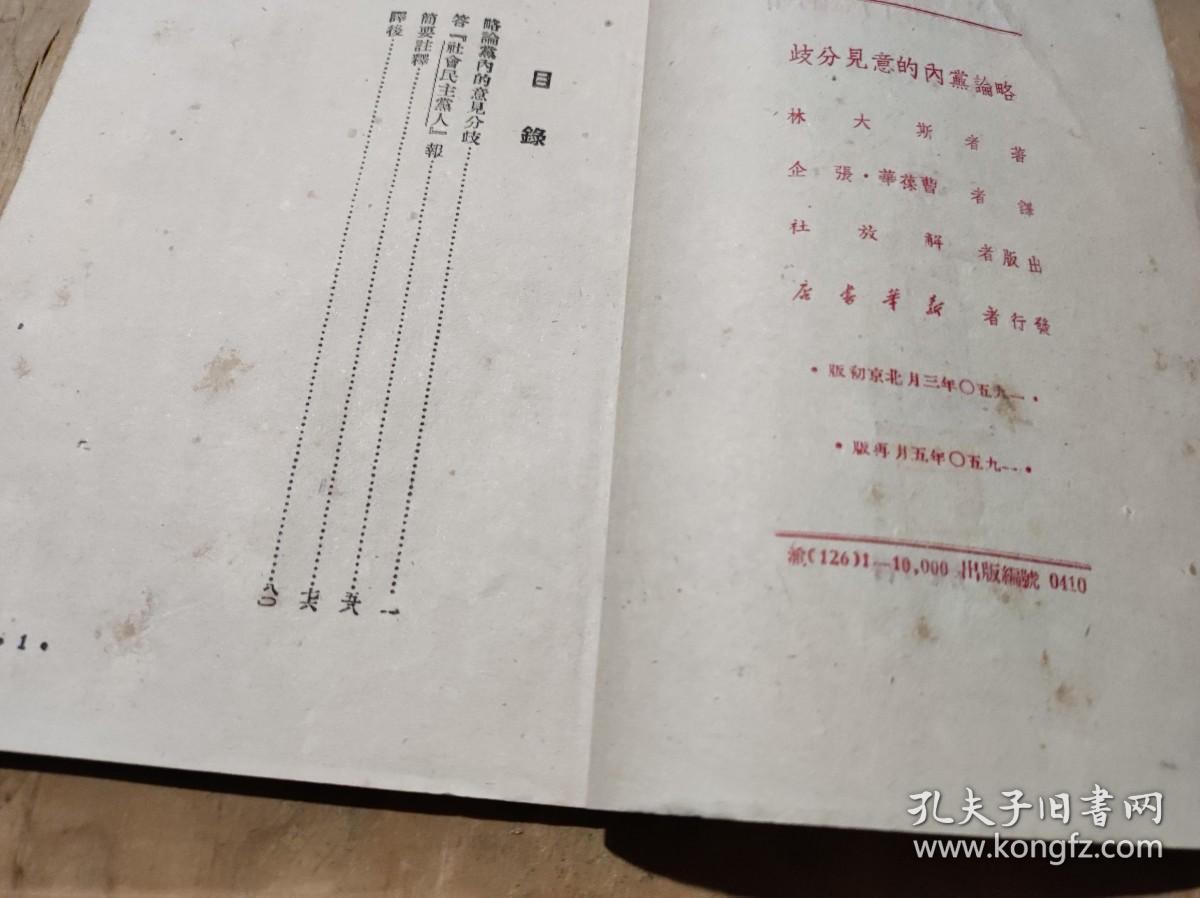 略論黨內的意見分歧
著者 斯大林
譯者 曹葆華·張企
出版者 解放社
發行者 新華書店
·一九五〇年三月北京初版·
·一九五〇年五月再版·
渝(126)1—10,000 出版編號 0410
目錄
略論黨內的意見分歧……一
答『社會民主黨人』報……
簡要註釋……七六
譯後……八〇
•1•
孔夫子旧书网
www.kongfz.com